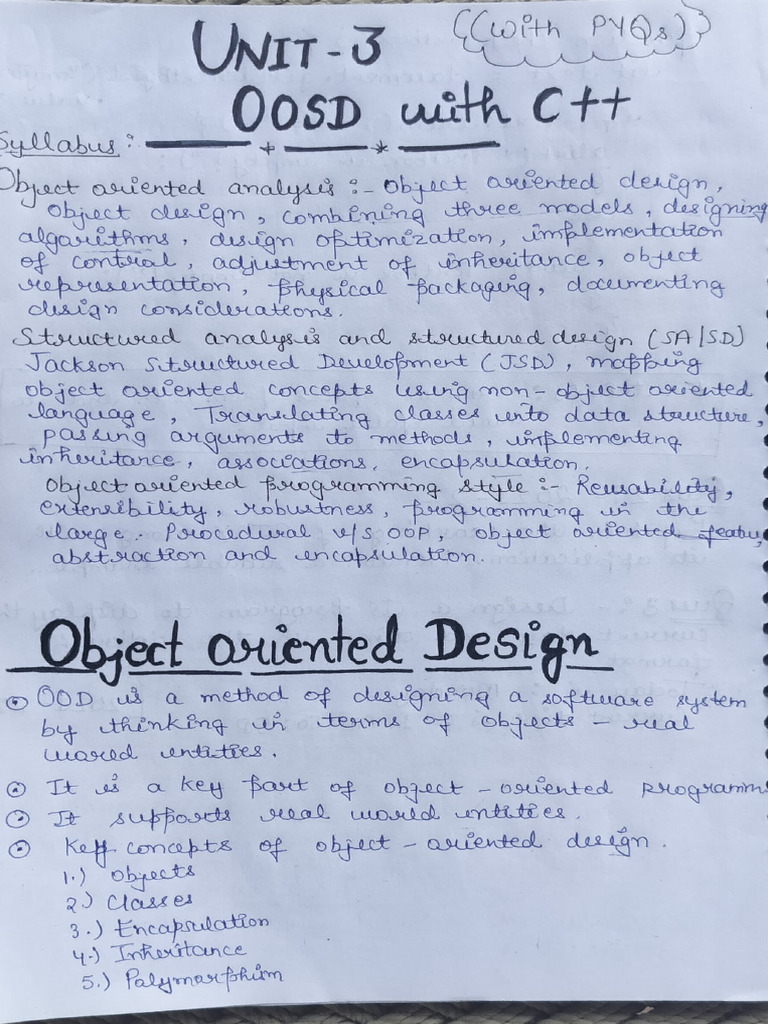 UNIT-3 ((With PYQs))
OOSD with C++
Syllabus :-
Object oriented analysis :- Object oriented design,
object design, combining three models, designing
algorithms, design optimization, implementation
of control, adjustment of inheritance, object
representation, physical packaging, documenting
design considerations.
Structured analysis and structured design (SA/SD)
Jackson Structured Development (JSD), mapping
object oriented concepts using non-object oriented
language, Translating classes into data structure,
passing arguments to methods, implementing
inheritance, associations, encapsulation.
Object oriented programming style :- Reusability,
extensibility, robustness, programming in the
large. Procedural v/s OOP, object oriented featu
abstraction and encapsulation.
Object oriented Design
OOD is a method of designing a software system
by thinking in terms of objects - real
wored entities.
It is a key part of object-oriented programm
It supports real world entities.
Key concepts of object-oriented design.
1.) Objects
2.) Classes
3.) Encapsulation
4.) Inheritance
5.) Polymorphism